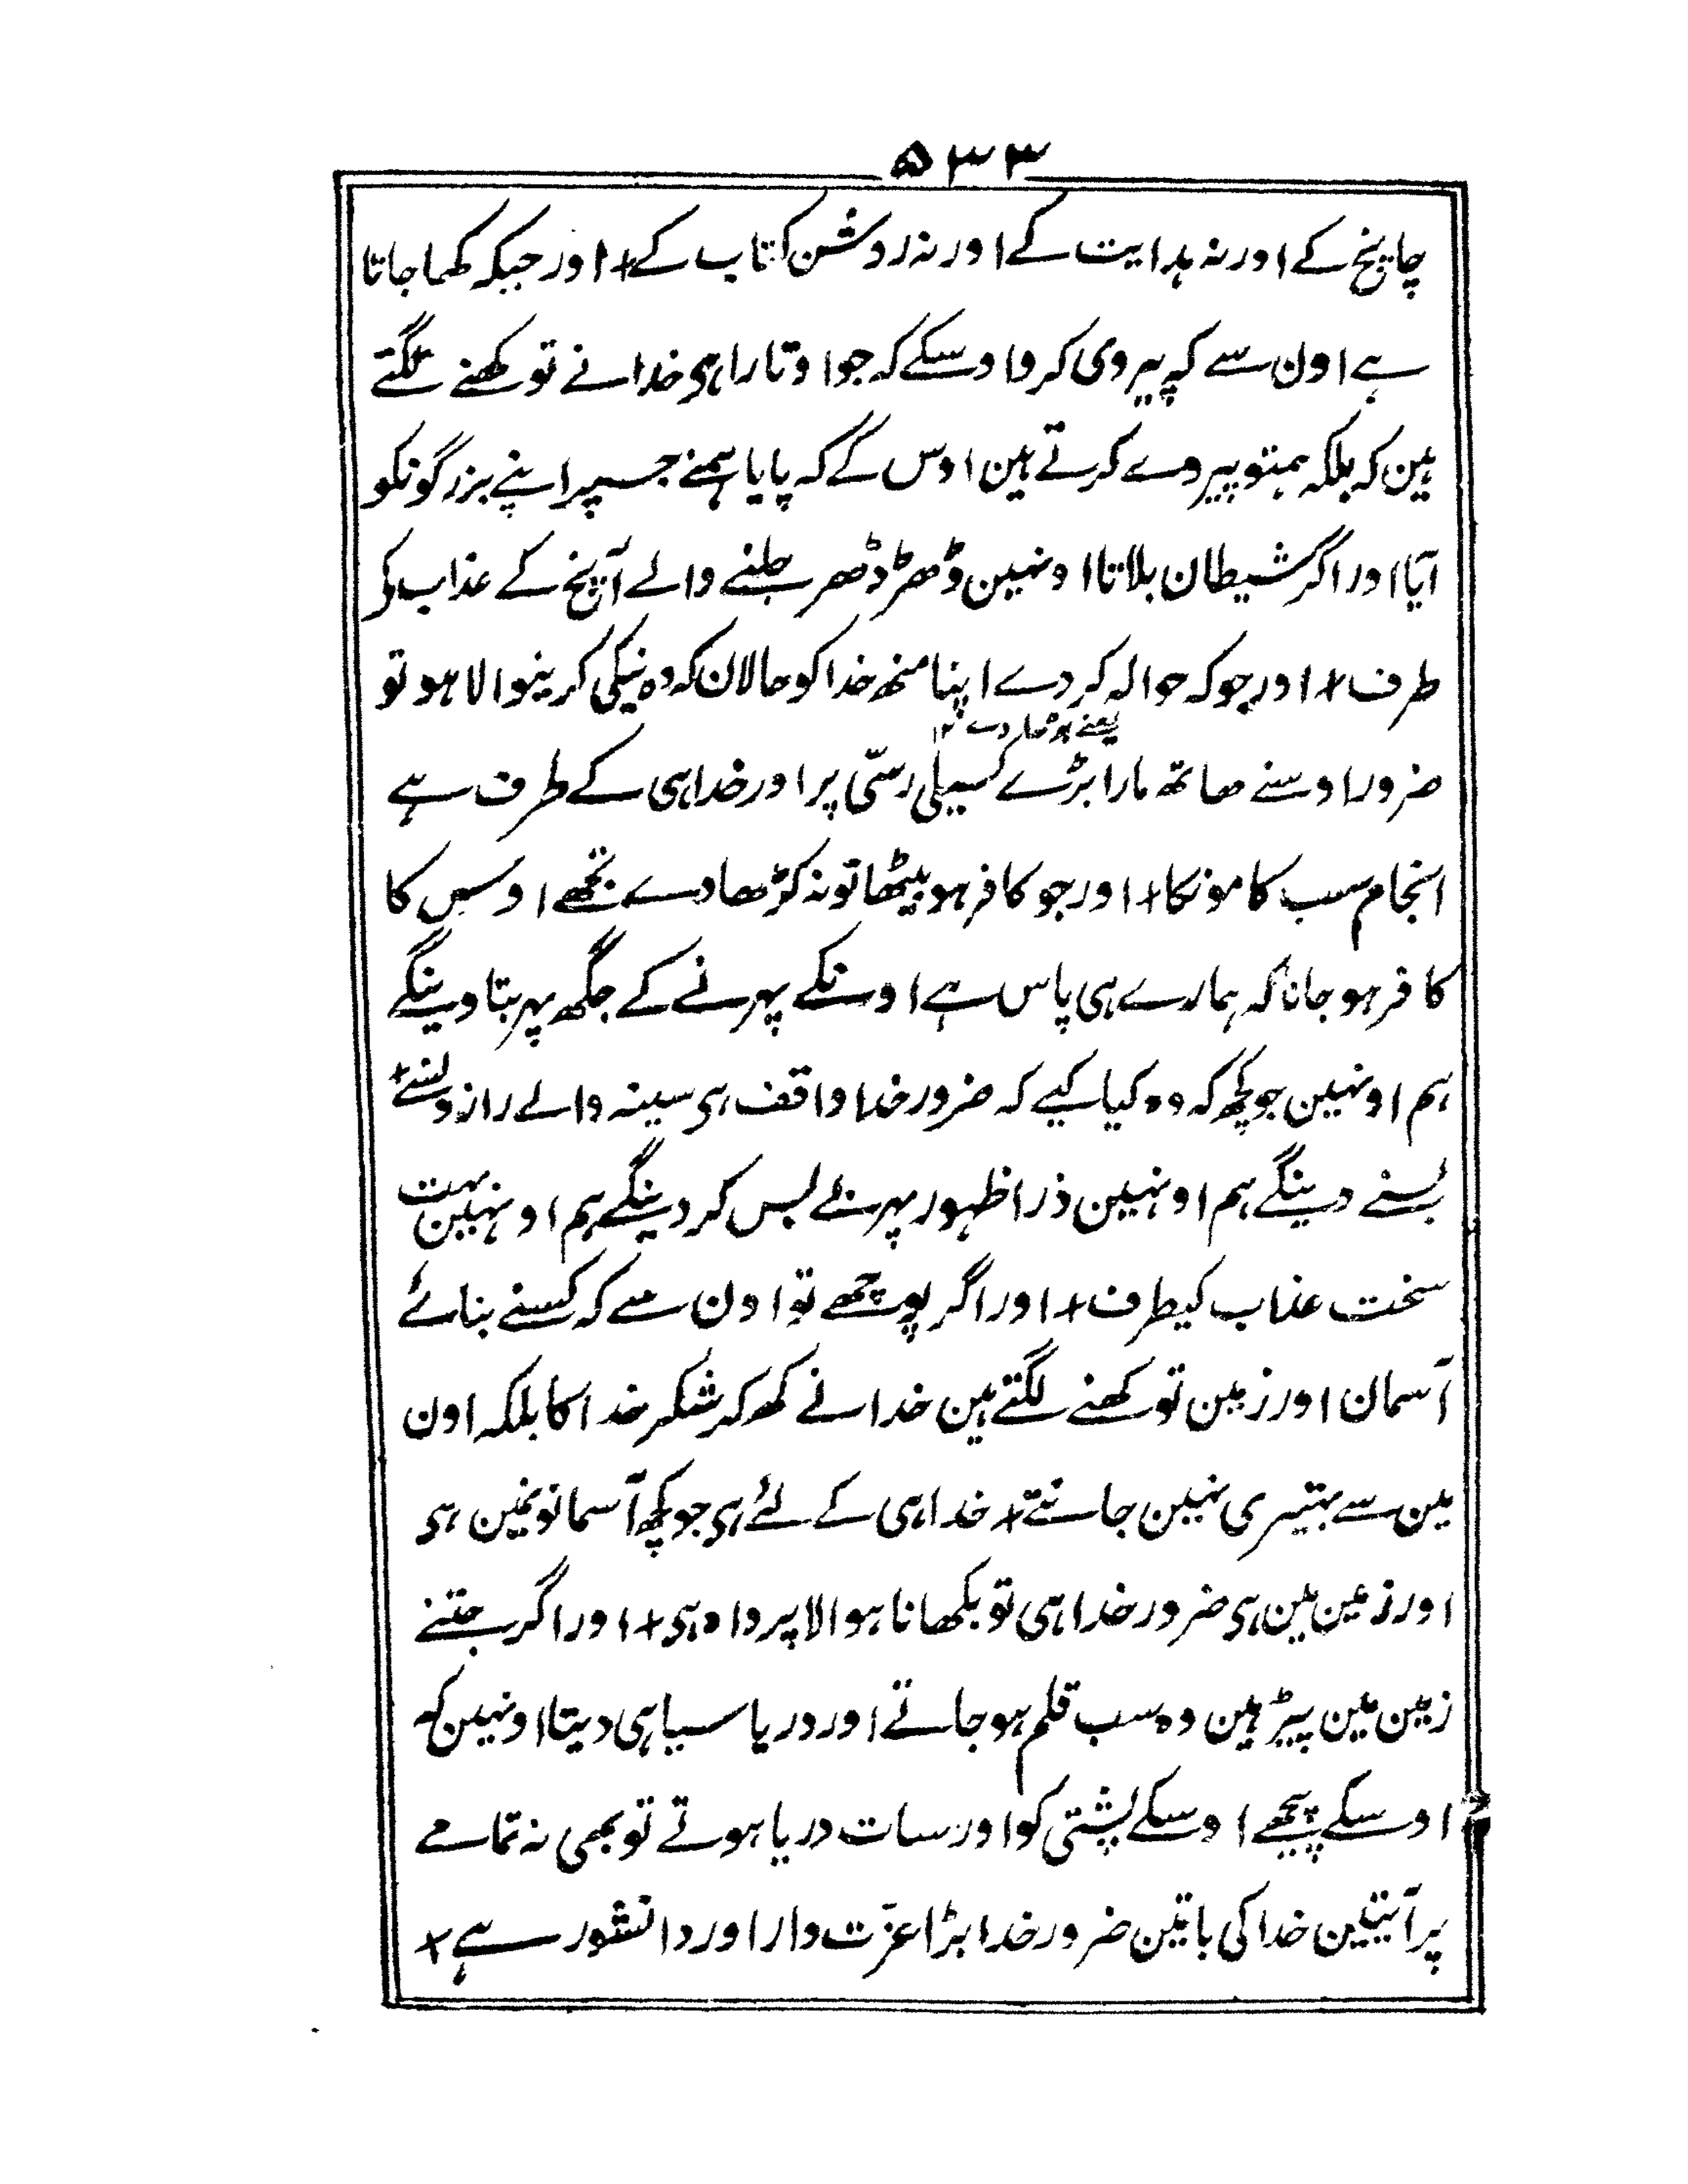 ۵۳۳
جاپنچ کے اور نہ ہدایت کے اور نہ روشن کتاب کے + اور جبکہ کھا جاتا
ہے اون سے کہ پیروی کرو اوسکے کہ جو اوتارا ہی خدا نے تو کھنے لگتے
ہین کہ بلکہ ہمتو پیروے کرتے ہین اوس کے کہ پایا ہمنے جسپر اپنے بزرگونکو
آیا اور اگر شیطان بلاتا اونہین دھڑ دھڑ جلنے والے آنچ کے عذاب کی
طرف + اور جو کہ حوالہ کر دے اپنا منھ خدا کو حالان کہ وہ نیکی کرینوالا ہو تو
یعنے بڑھا دے ۱۲
ضرور اوسنے ھاتھ مارا بڑے کسیلی رسّی پر اور خدا ہی کے طرف ہے
انجام سب کامونکا + اور جو کافر ہو بیٹھا تو نہ کڑھا دے تجھے اوس کا
کافر ہو جانا کہ ہمارے ہی پاس ہے اونکے پہرنے کے جگھ پہر بتا دینگے
ہم اونہین جو کچھ کہ وہ کیا کیے کہ ضرور خدا واقف ہی سینہ والے رازونسے +
بسنے دینگے ہم اونہین ذرا ظہور پہر بے بس کر دینگے ہم اونہین بہت
سخت عذاب کیطرف + اور اگر پوچھے تو اون سے کہ کسنے بنائے
آسمان اور زمین تو کھنے لگتے ہین خدا نے کھ کہ شکر خدا کا بلکہ اون
مین سے بہتیری نہین جانتے + خدا ہی کے لئے ہی جو کچھ آسمانونمین ہی
اور زمین مین ہی ضرور خدا ہی تو بکھانا ہوا لاپرواہ ہی + اور اگر جتنے
زمین مین پیڑ ہین وہ سب قلم ہو جاتے اور دریا سیاہی دیتا اونہین کہ
اوسکے پیچھے اوسکے پشتی کو اور سات دریا ہوتے تو بھی نہ تمامے
پر آتیین خدا کی باتین ضرور خدا بڑا عزّت دار اور دانشور ہے +